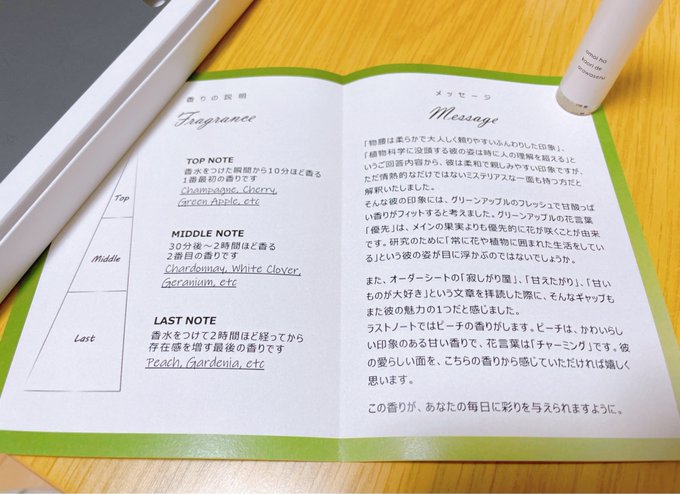 香りの説明
Fragrance
TOP NOTE
香水をつけた瞬間から10分ほど香る
1番最初の香りです
Champagne, Cherry,
Green Apple, etc
MIDDLE NOTE
30分後～2時間ほど香る
2番目の香りです
Chardonnay, White Clover,
Geranium, etc
LAST NOTE
香水をつけて2時間ほど経ってから
存在感を増す最後の香りです
Peach, Gardenia, etc
Top
Middle
Last
メッセージ
Message
「物腰は柔らかで大人しく頼りやすいふんわりした印象」、
「植物科学に没頭する彼の姿は時に人の理解を超える」と
いうご回答内容から、彼は柔和で親しみやすい印象ですが、
ただ情熱的なだけではないミステリアスな一面も持つ方だと
解釈いたしました。
そんな彼の印象には、グリーンアップルのフレッシュで甘酸っぱ
い香りがフィットすると考えました。グリーンアップルの花言葉
「優先」は、メインの果実よりも優先的に花が咲くことが由来
です。研究のために「常に花や植物に囲まれた生活をしてい
る」という彼の姿が目に浮かぶのではないでしょうか。
また、オーダーシートの「寂しがり屋」、「甘えたがり」、「甘い
ものが大好き」という文章を拝読した際に、そんなギャップも
また彼の魅力の1つだと感じました。
ラストノートではピーチの香りがします。ピーチは、かわいらし
い印象のある甘い香りで、花言葉は「チャーミング」です。彼
の愛らしい面を、こちらの香りから感じていただければ嬉しく
思います。
この香りが、あなたの毎日に彩りを与えられますように。
omoi ha
kaori de
arawaseru